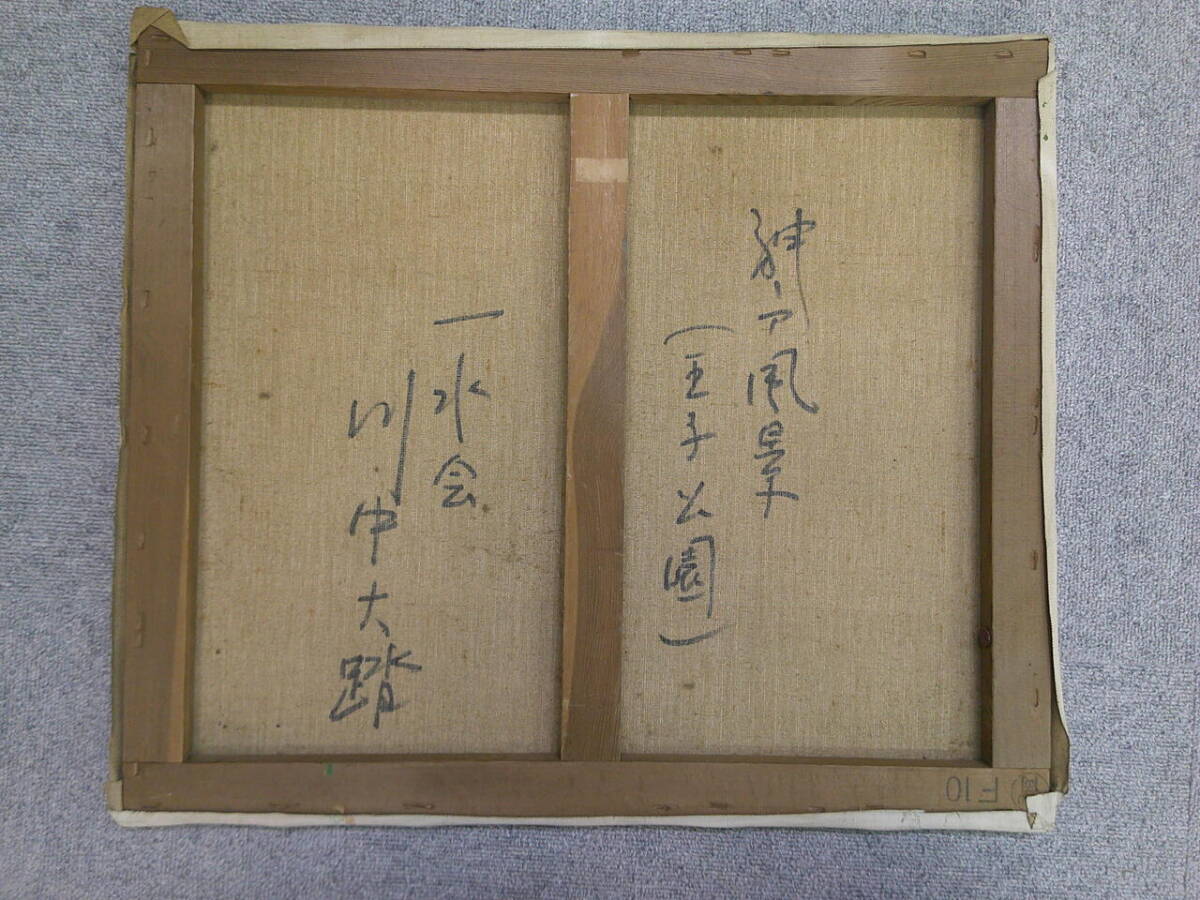 神戸風景
(王子公園)
一水会
川中大踏
F10